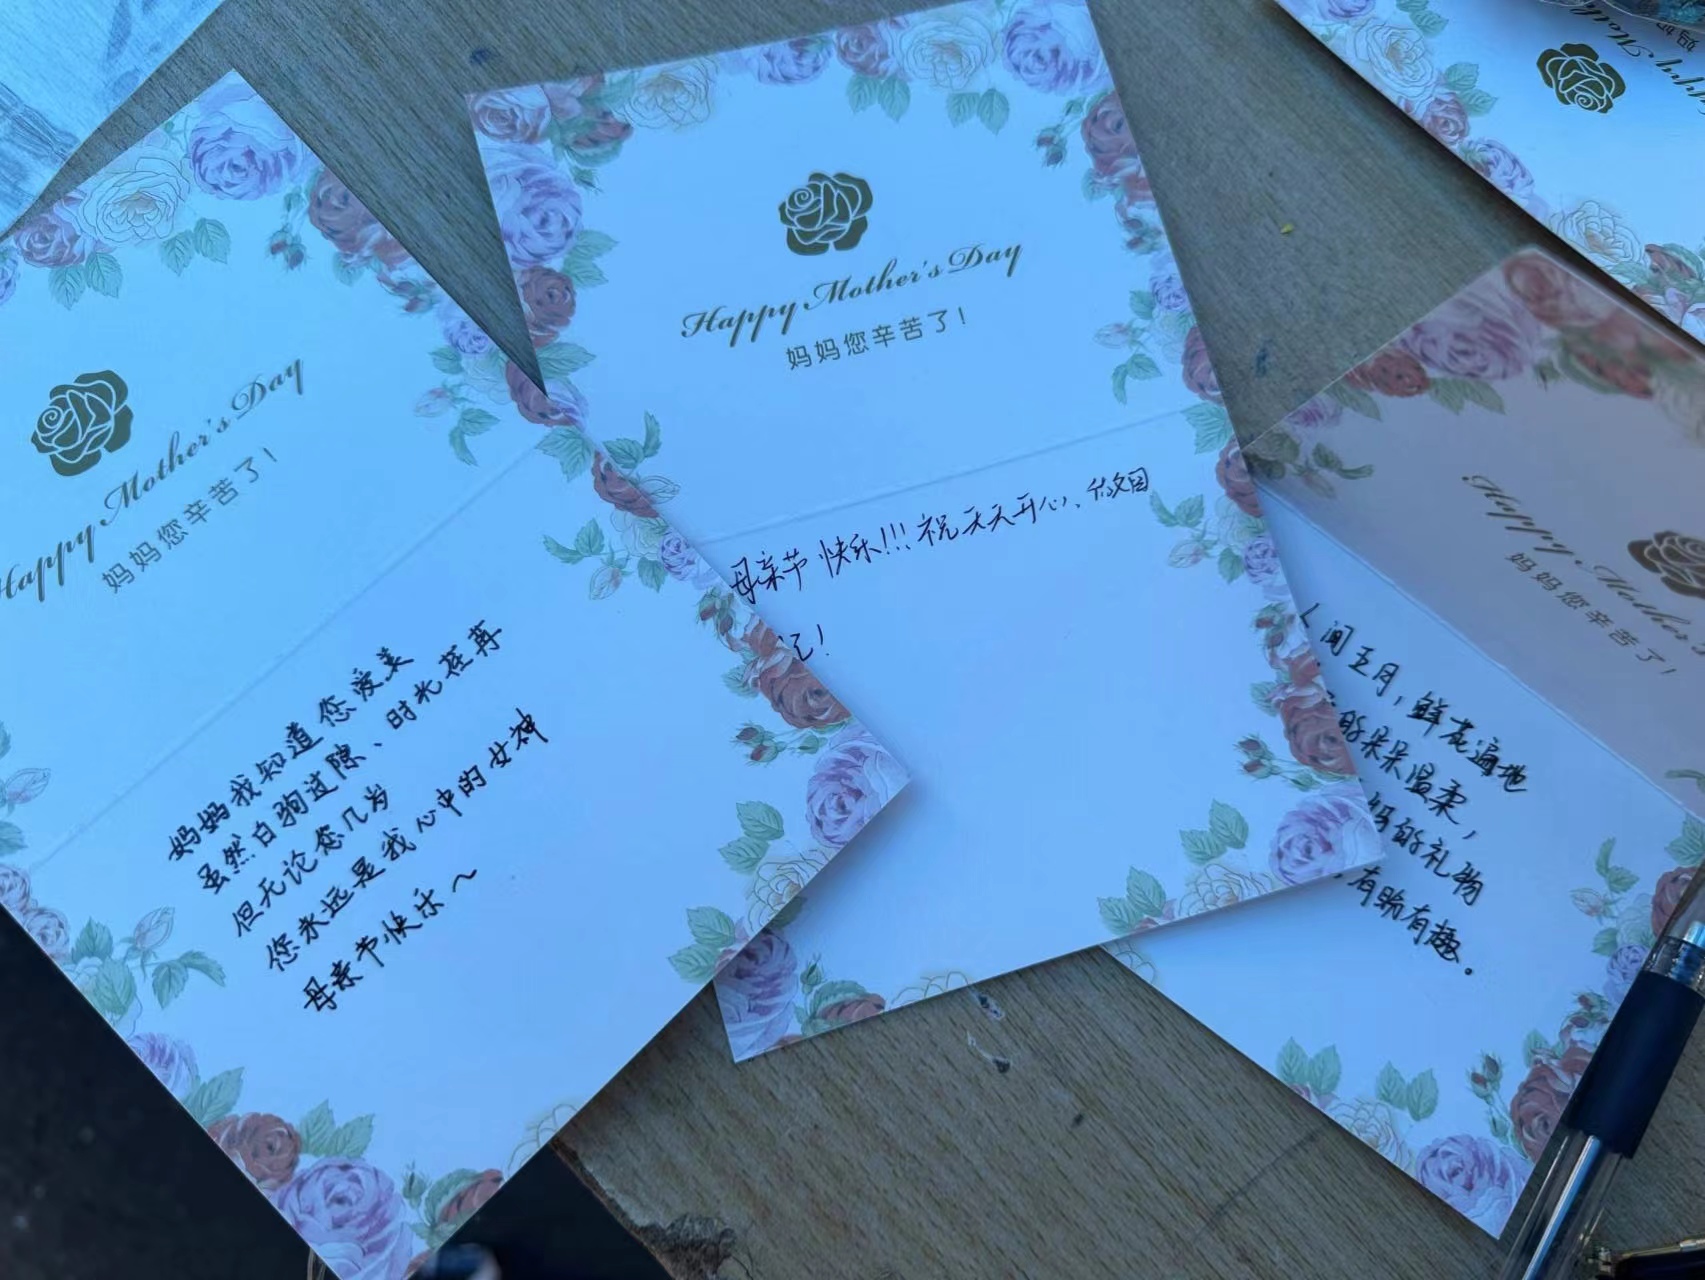 Happy Mother's Day
妈妈您辛苦了!
妈妈我知道您爱美
虽然白驹过隙、时光荏苒
但无论您几岁
您永远是我心中的女神
母亲节快乐~
Happy Mother's Day
妈妈您辛苦了!
母亲节快乐!!!祝天天开心、做自
己!
Happy Mother's
妈妈您辛苦了!
人间五月,鲜花遍地
的朵朵温柔,
妈的礼物
有盼有趣.